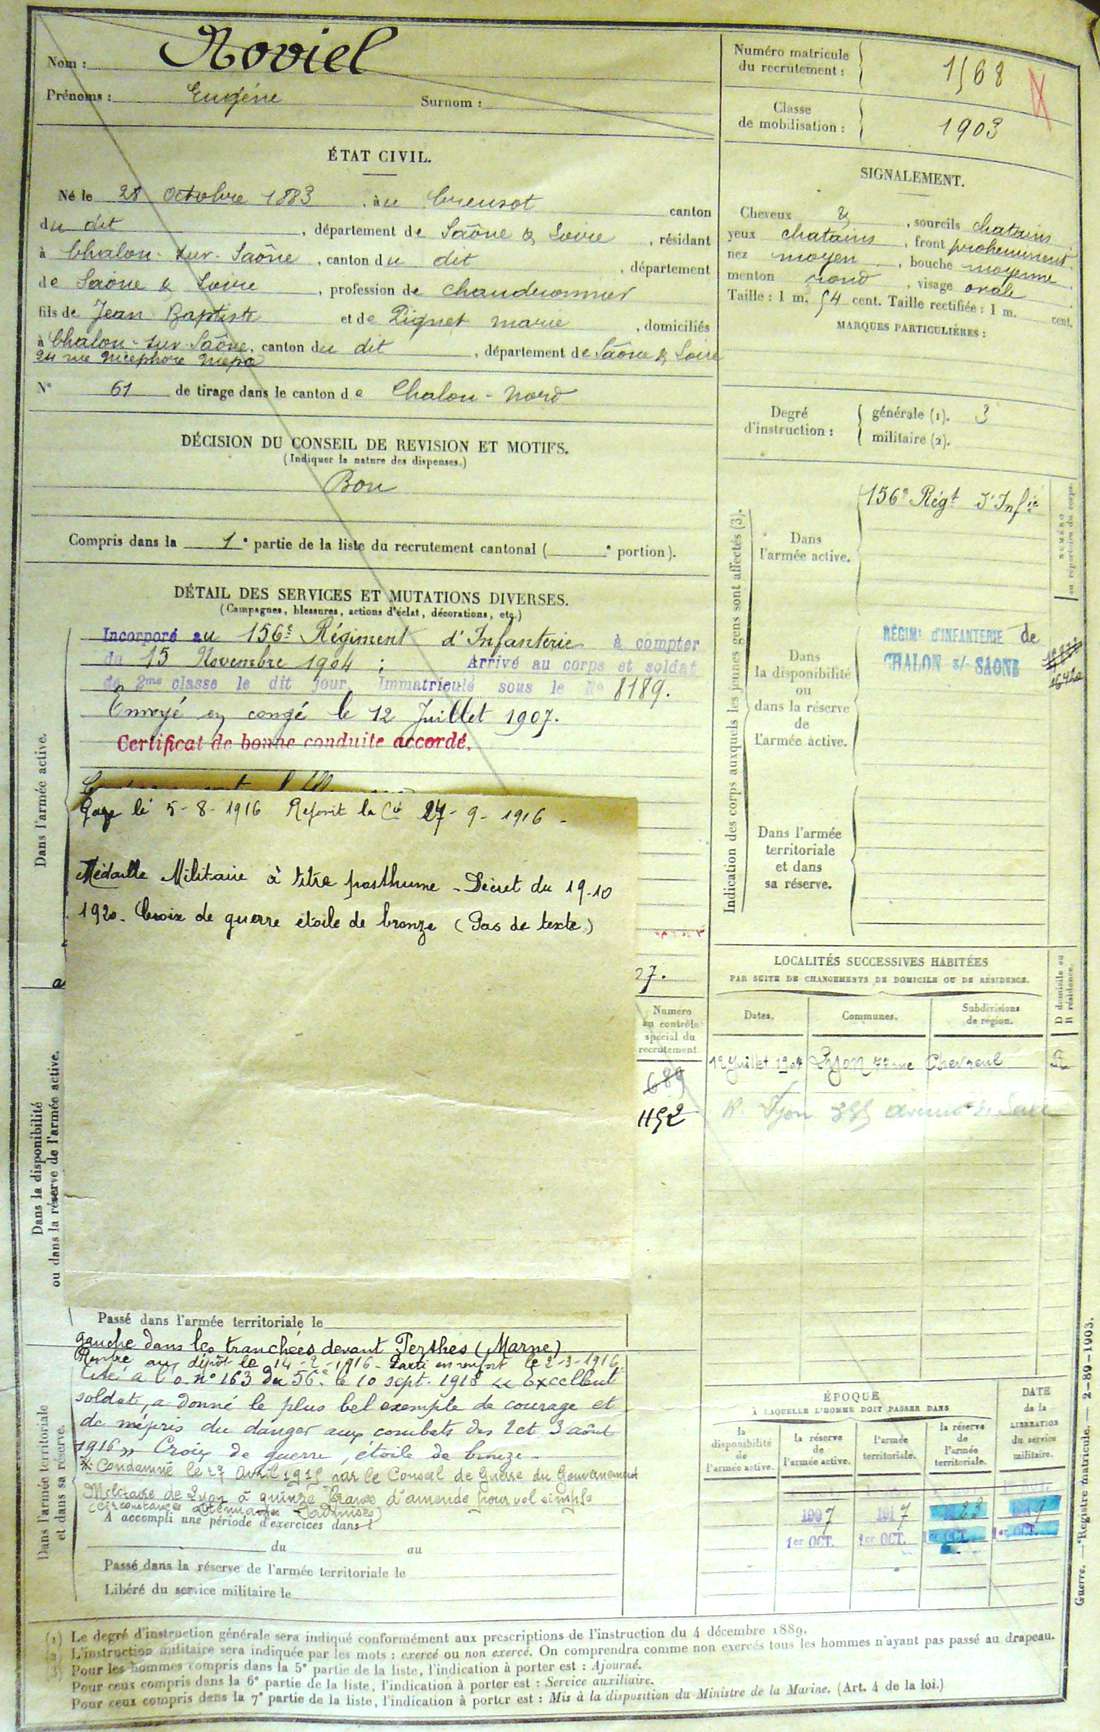 Nom : Noviel
Prénoms : Eugène Surnom :
ÉTAT CIVIL.
Né le 28 Octobre 1883, au Creusot canton
du dit, département de Saône & Loire, résidant
à Chalon-sur-Saône, canton du dit, département
de Saône & Loire, profession de chaudronnier
fils de Jean Baptiste et de Pignet Marie, domiciliés
à Chalon-sur-Saône, canton du dit, département de Saône & Loire
24 rue Nicéphore
N° 61 de tirage dans le canton de Chalon-Nord
DÉCISION DU CONSEIL DE REVISION ET MOTIFS.
(Indiquer la nature des dispenses.)
Bon
Compris dans la 1e partie de la liste du recrutement cantonal ( e portion).
DÉTAIL DES SERVICES ET MUTATIONS DIVERSES.
(Campagnes, blessures, actions d'éclat, décorations, etc.)
Dans l'armée active.
Incorporé au 156e Régiment d'Infanterie à compter
du 15 Novembre 1904 ; Arrivé au corps et soldat
de 2me classe le dit jour. Immatriculé sous le No 8189.
Envoyé en congé le 12 Juillet 1907.
Certificat de bonne conduite accordé.
le 5-8-1916 Rejoint la Cie 27-9-1916 -
Médaille Militaire à titre posthume - Décret du 19-10
1920. Croix de guerre étoile de bronze (Pas de texte)
27.
Numéro
au contrôle
spécial du
recrutement
689
1152
Dans la disponibilité
ou dans la réserve de l'armée active.
Passé dans l'armée territoriale le
gauche dans les tranchées devant Perthes (Marne)
Rentré au dépôt le 14-2-1916 - Parti en renfort le 2-3-1916
Cité à l'o. n° 163 du 56e le 10 sept. 1916 « Excellent
soldat, a donné le plus bel exemple de courage et
de mépris du danger aux combats des 2 et 3 août
1916 » Croix de guerre, étoile de bronze
Condamné le 27 Avril 1915 par le Conseil de Guerre du Gouvernement
Militaire de Lyon à quinze francs d'amende pour vol simple
(circonstances atténuantes admises)
Dans l'armée territoriale
et dans sa réserve.
A accompli une période d'exercices dans l
du au
Passé dans la réserve de l'armée territoriale le
Libéré du service militaire le
Numéro matricule
du recrutement : 1568
Classe
de mobilisation : 1903
SIGNALEMENT.
Cheveux &, sourcils chatains
yeux chatains, front proéminent
nez moyen, bouche moyenne
menton rond, visage ovale
Taille : 1 m. 54 cent. Taille rectifiée : 1 m. cent.
MARQUES PARTICULIÈRES :
Degré
d'instruction :
générale (1). 3
militaire (2).
Indication des corps auxquels les jeunes gens sont affectés (3).
Dans
l'armée active.
156e Régt d'Infie
NUMÉRO
au répertoire du corps.
Dans
la disponibilité
ou
dans la réserve
de
l'armée active.
RÉGIMt D'INFANTERIE de
CHALON s/- SAONE
Dans l'armée
territoriale
et dans
sa réserve.
LOCALITÉS SUCCESSIVES HABITÉES
PAR SUITE DE CHANGEMENTS DE DOMICILE OU DE RÉSIDENCE.
Dates.
Communes.
Subdivisions
de région.
D domicile ou
R résidence.
Juillet Lyon 7 rue Chevreul R
Lyon avenue de Saxe
ÉPOQUE
À LAQUELLE L'HOMME DOIT PASSER DANS
la
disponibilité
de
l'armée active.
la réserve
de
l'armée active.
l'armée
territoriale.
la réserve
de
l'armée
territoriale.
DATE
de la
LIBÉRATION
du service
militaire.
1907 1917
1er OCT. 1er OCT. 1er OCT. 1er OCT.
Guerre. — Registre matricule. — 2-89-1903.
(1) Le degré d'instruction générale sera indiqué conformément aux prescriptions de l'instruction du 4 décembre 1889.
(2) L'instruction militaire sera indiquée par les mots : exercé ou non exercé. On comprendra comme non exercés tous les hommes n'ayant pas passé au drapeau.
(3) Pour les hommes compris dans la 5e partie de la liste, l'indication à porter est : Ajourné.
Pour ceux compris dans la 6e partie de la liste, l'indication à porter est : Service auxiliaire.
Pour ceux compris dans la 7e partie de la liste, l'indication à porter est : Mis à la disposition du Ministre de la Marine. (Art. 4 de la loi.)